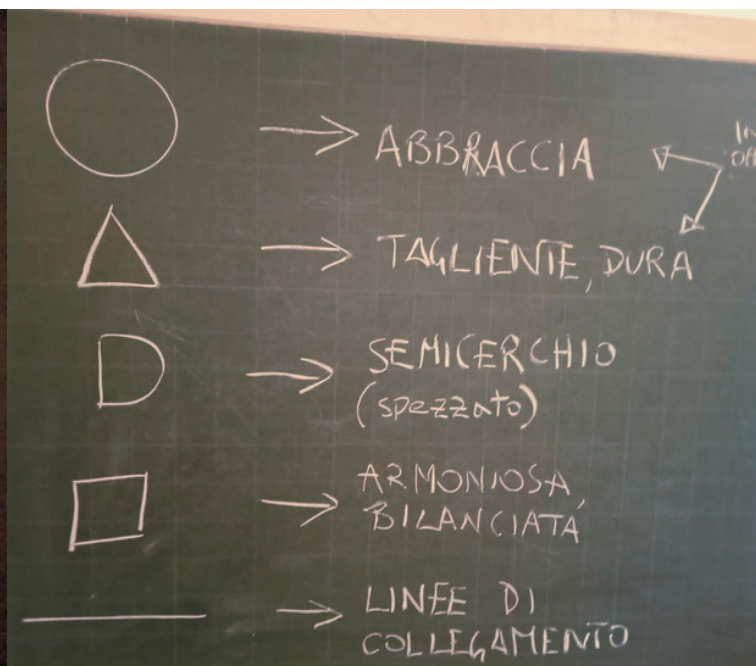 ABBRACCIA
TAGLIENTE, DURA
SEMICERCHIO
(spezzato)
ARMONIOSA,
BILANCIATA
LINEE DI
COLLEGAMENTO